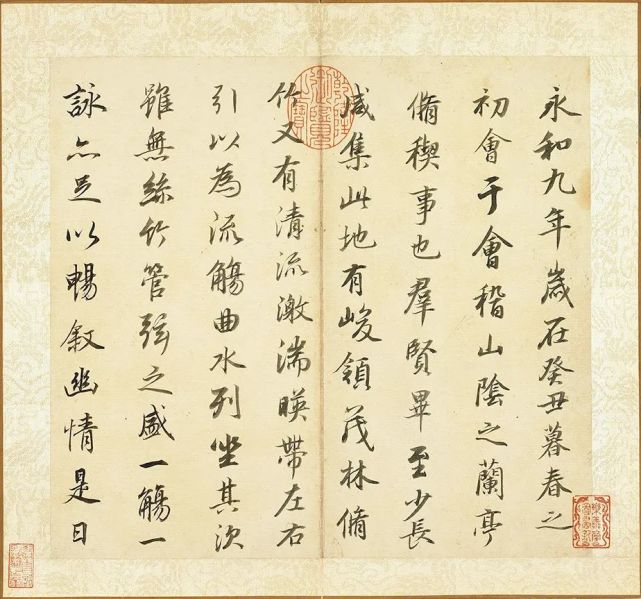 永和九年歲在癸丑暮春之
初會于會稽山陰之蘭亭
脩稧事也羣賢畢至少長
咸集此地有峻領茂林脩
竹又有清流激湍暎帶左右
引以為流觴曲水列坐其次
雖無絲竹管弦之盛一觴一
詠亦足以暢敘幽情是日
乾隆御覽之寶